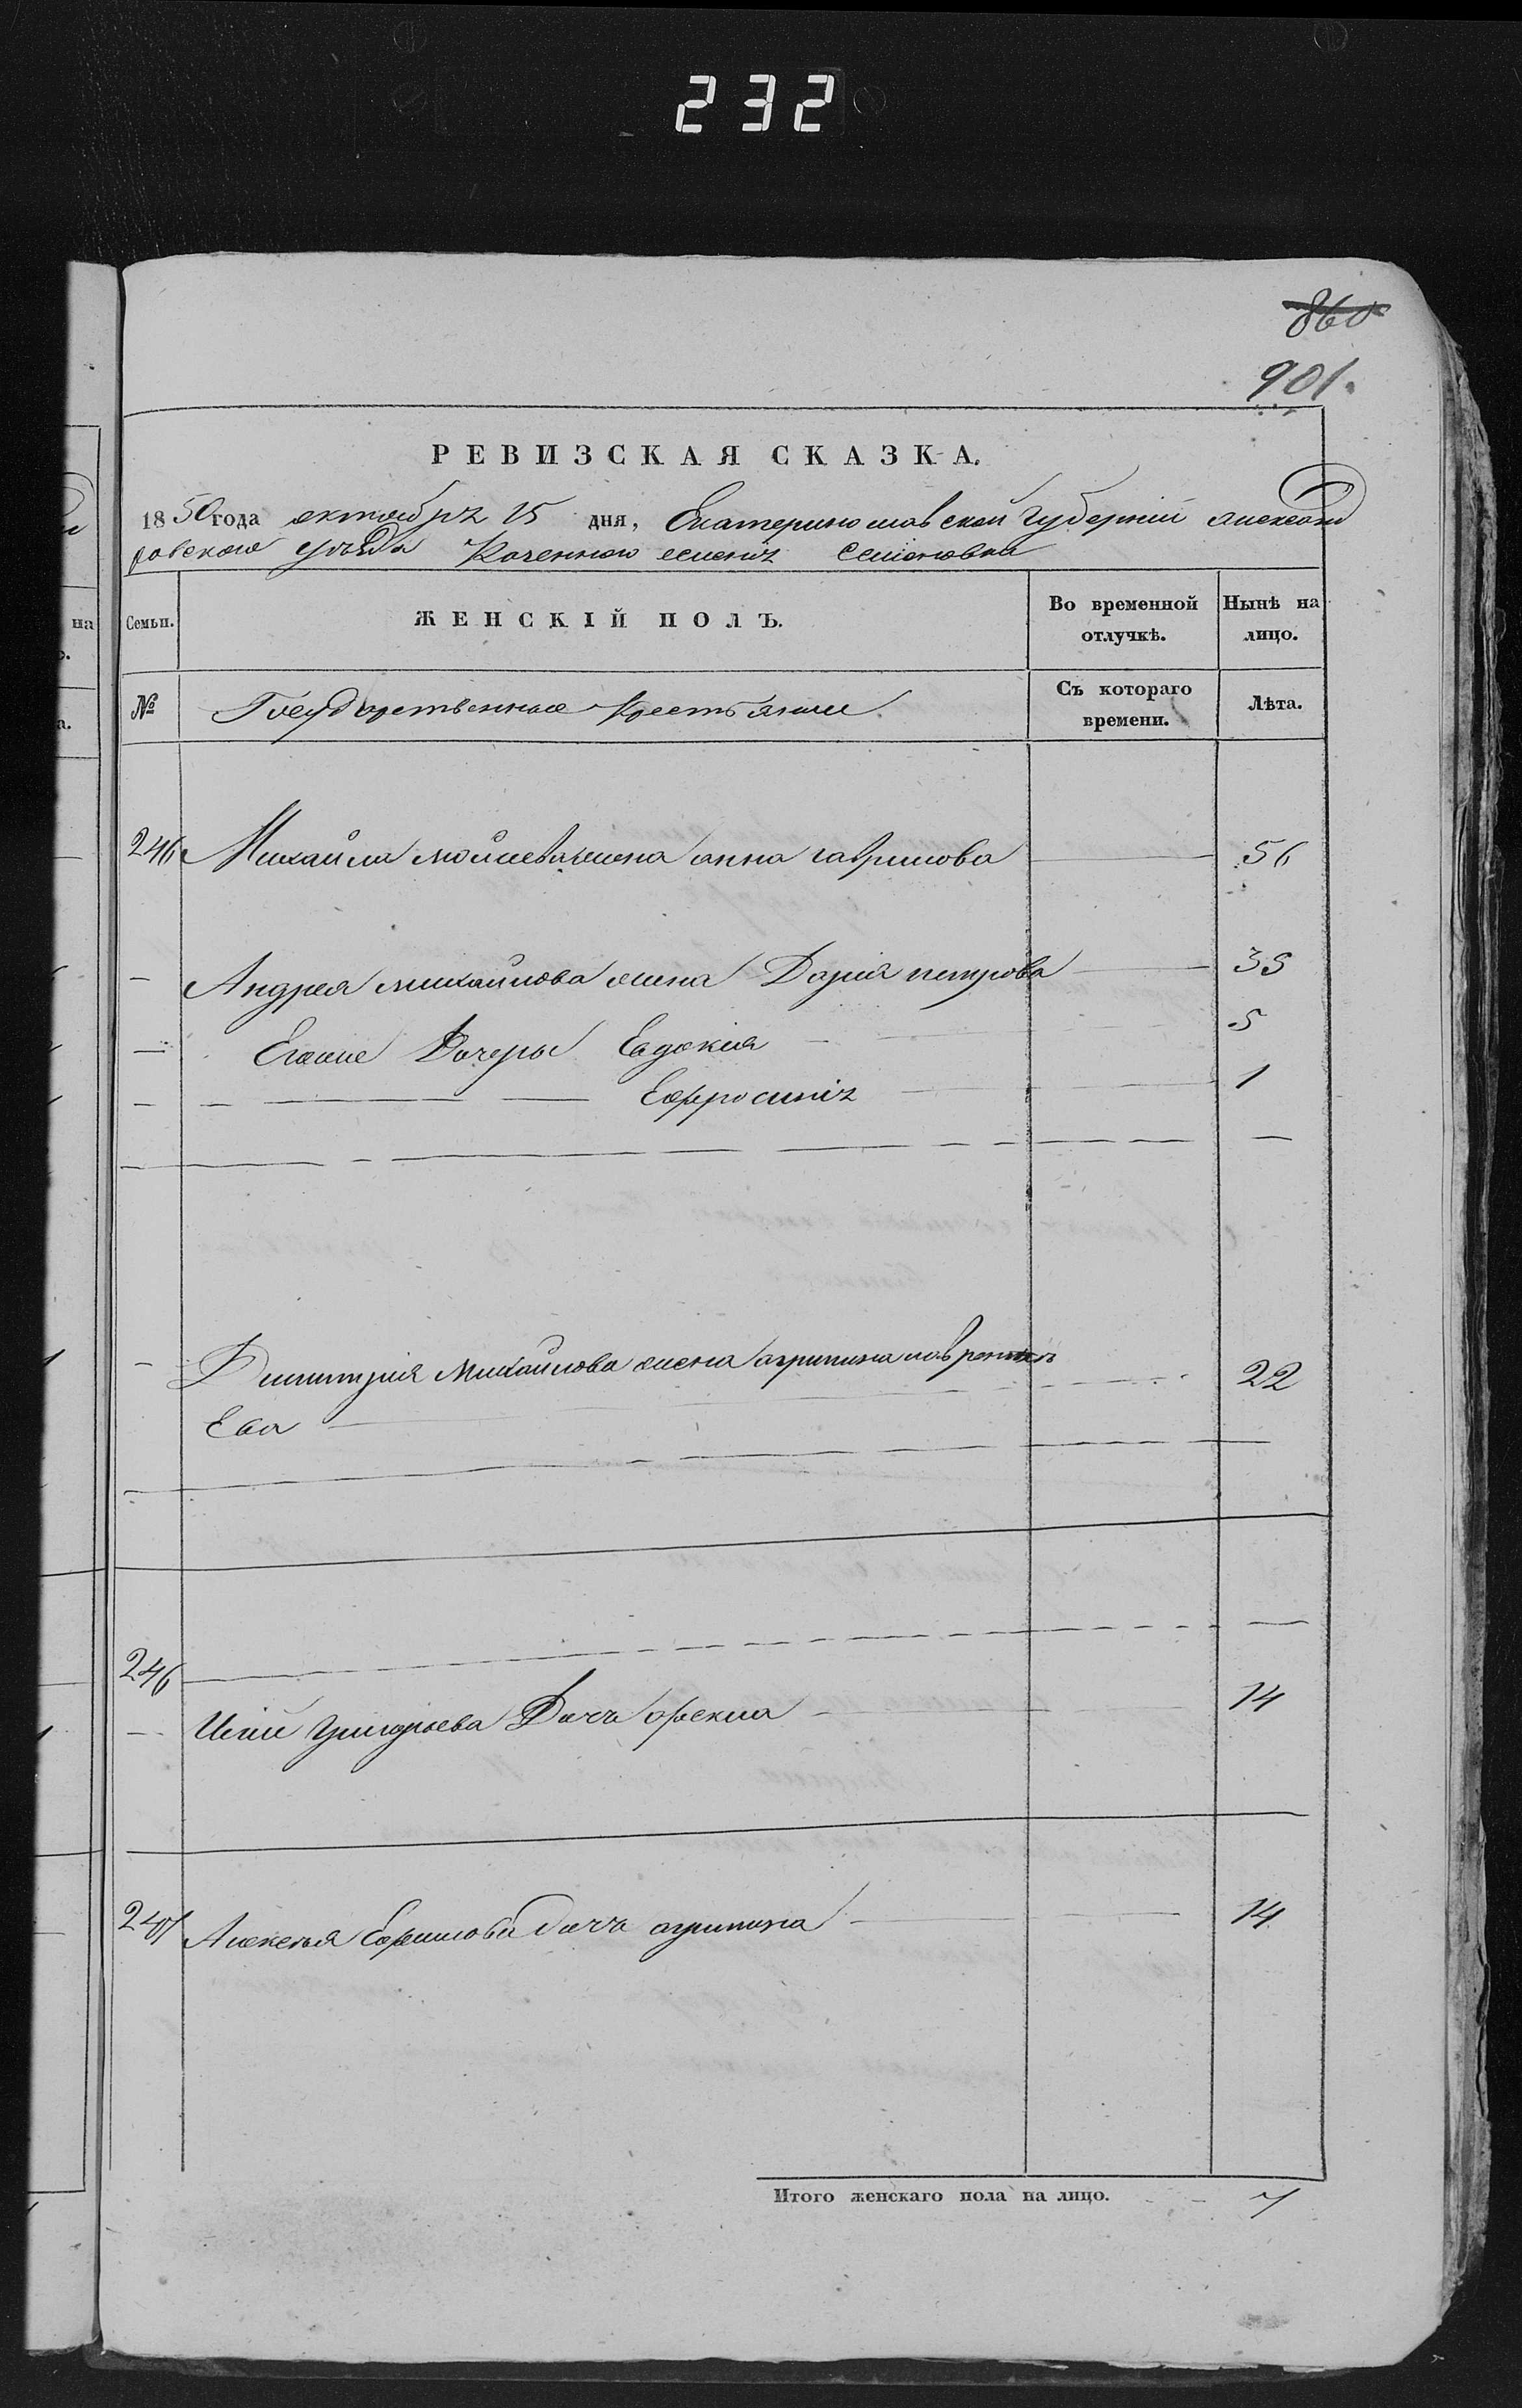 232
860
901.
РЕВИЗСКАЯ СКАЗКА.
1850 года октября 15 дня, Екатеринославской Губерніи Александ
ровского уѣзда Казенного селенія Семеновки
Семьи. ЖЕНСКІЙ ПОЛЪ. Во временной отлучкѣ. Нынѣ на лицо.
№ Государственные Крестьяне Съ котораго времени. Лѣта.
246 Михаила Мойсева жена анна гаврилова 56
Андрея михайлова жена Дарія петрова 35
Егоже Дочеры Евдокия 5
Ефросинія 1
Димитрия Михайлова жена агрипина лаврентъ 22
Ева
246
григорьева Дочь фекла 14
247 Алексея Ефимова дочь агрипина 14
Итого женскаго пола на лицо. 7
на